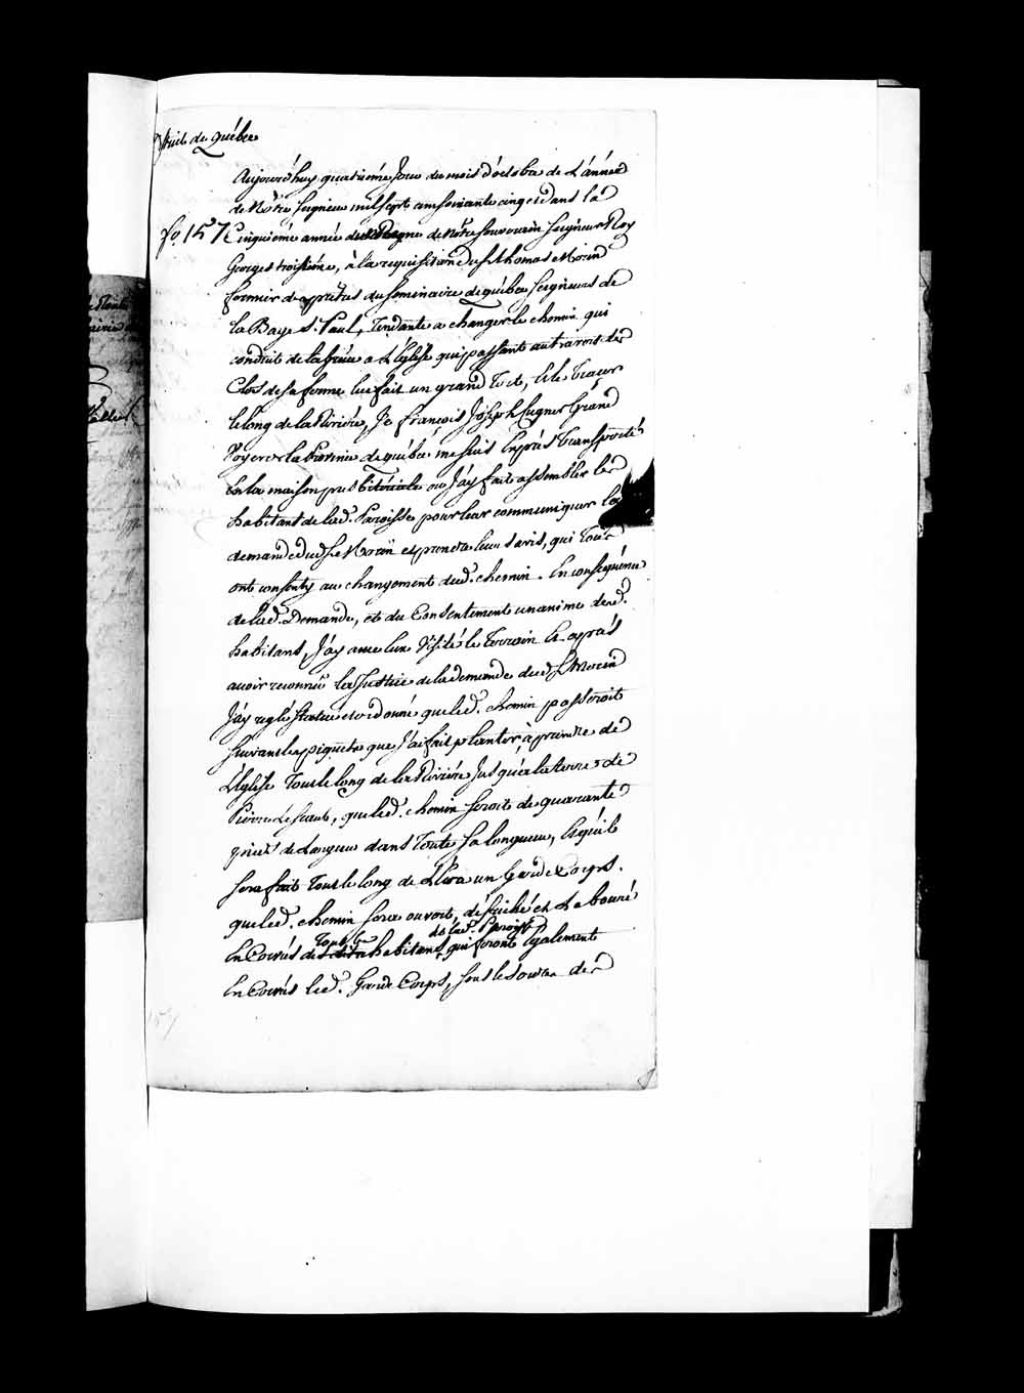 Druit de québec
Aujourd'huy quatrième Jour du mois d'octobre de L'année
de Nôtre Seigneur mil sept cens soixante cinq et dans la
fo. 157 Cinquième année du Regne de Nôtre Souverain Seigneur Roy
Georges troisième, à la requisition du S. Thomas Morin
fermier des prêtres du Seminaire de québec Seigneurs de
la Baye St. Paul, Tendante a changer le chemin qui
conduit de la à L'Eglise qui passant au travers des
Clos de sa ferme luy fait un grand Tort, & le tracer
le long de la Rivière, Je François Joseph Cugnet Grand
Voyer de la Province de québec me suis Exprès transporté
En la maison presbitérale ou J'ay fait assembler les
habitans de lad. Paroisse pour leur communiquer la
demande dud. S. Morin et prendre leurs avis, qui Tous
ont consenty au changement dud. chemin. En conséquence
de lad. Demande, et du Consentement unanime desd.
habitans, J'ay avec Eux Visité le Terrain Et après
avoir reconnu la Justice de la demande dud. S. Morin
J'ay reglé statué et ordonné que led. chemin passeroit
suivant les piquets que J'ai fait planter, à prendre de
L'Eglise Tout le long de la Rivière Jusqu'a la terre de
Pierre , que led. chemin seroit de quarante
pieds de Largeur dans Toute sa longueur, & qu'il
sera fait Tout le long de un Garde Corps.
que led. chemin sera ouvert, défriché et Labouré
En Corvées de Tous les habitans de lad. Paroisse qui feront Egalement
En Corvées led. Garde Corps, sous les ordres des